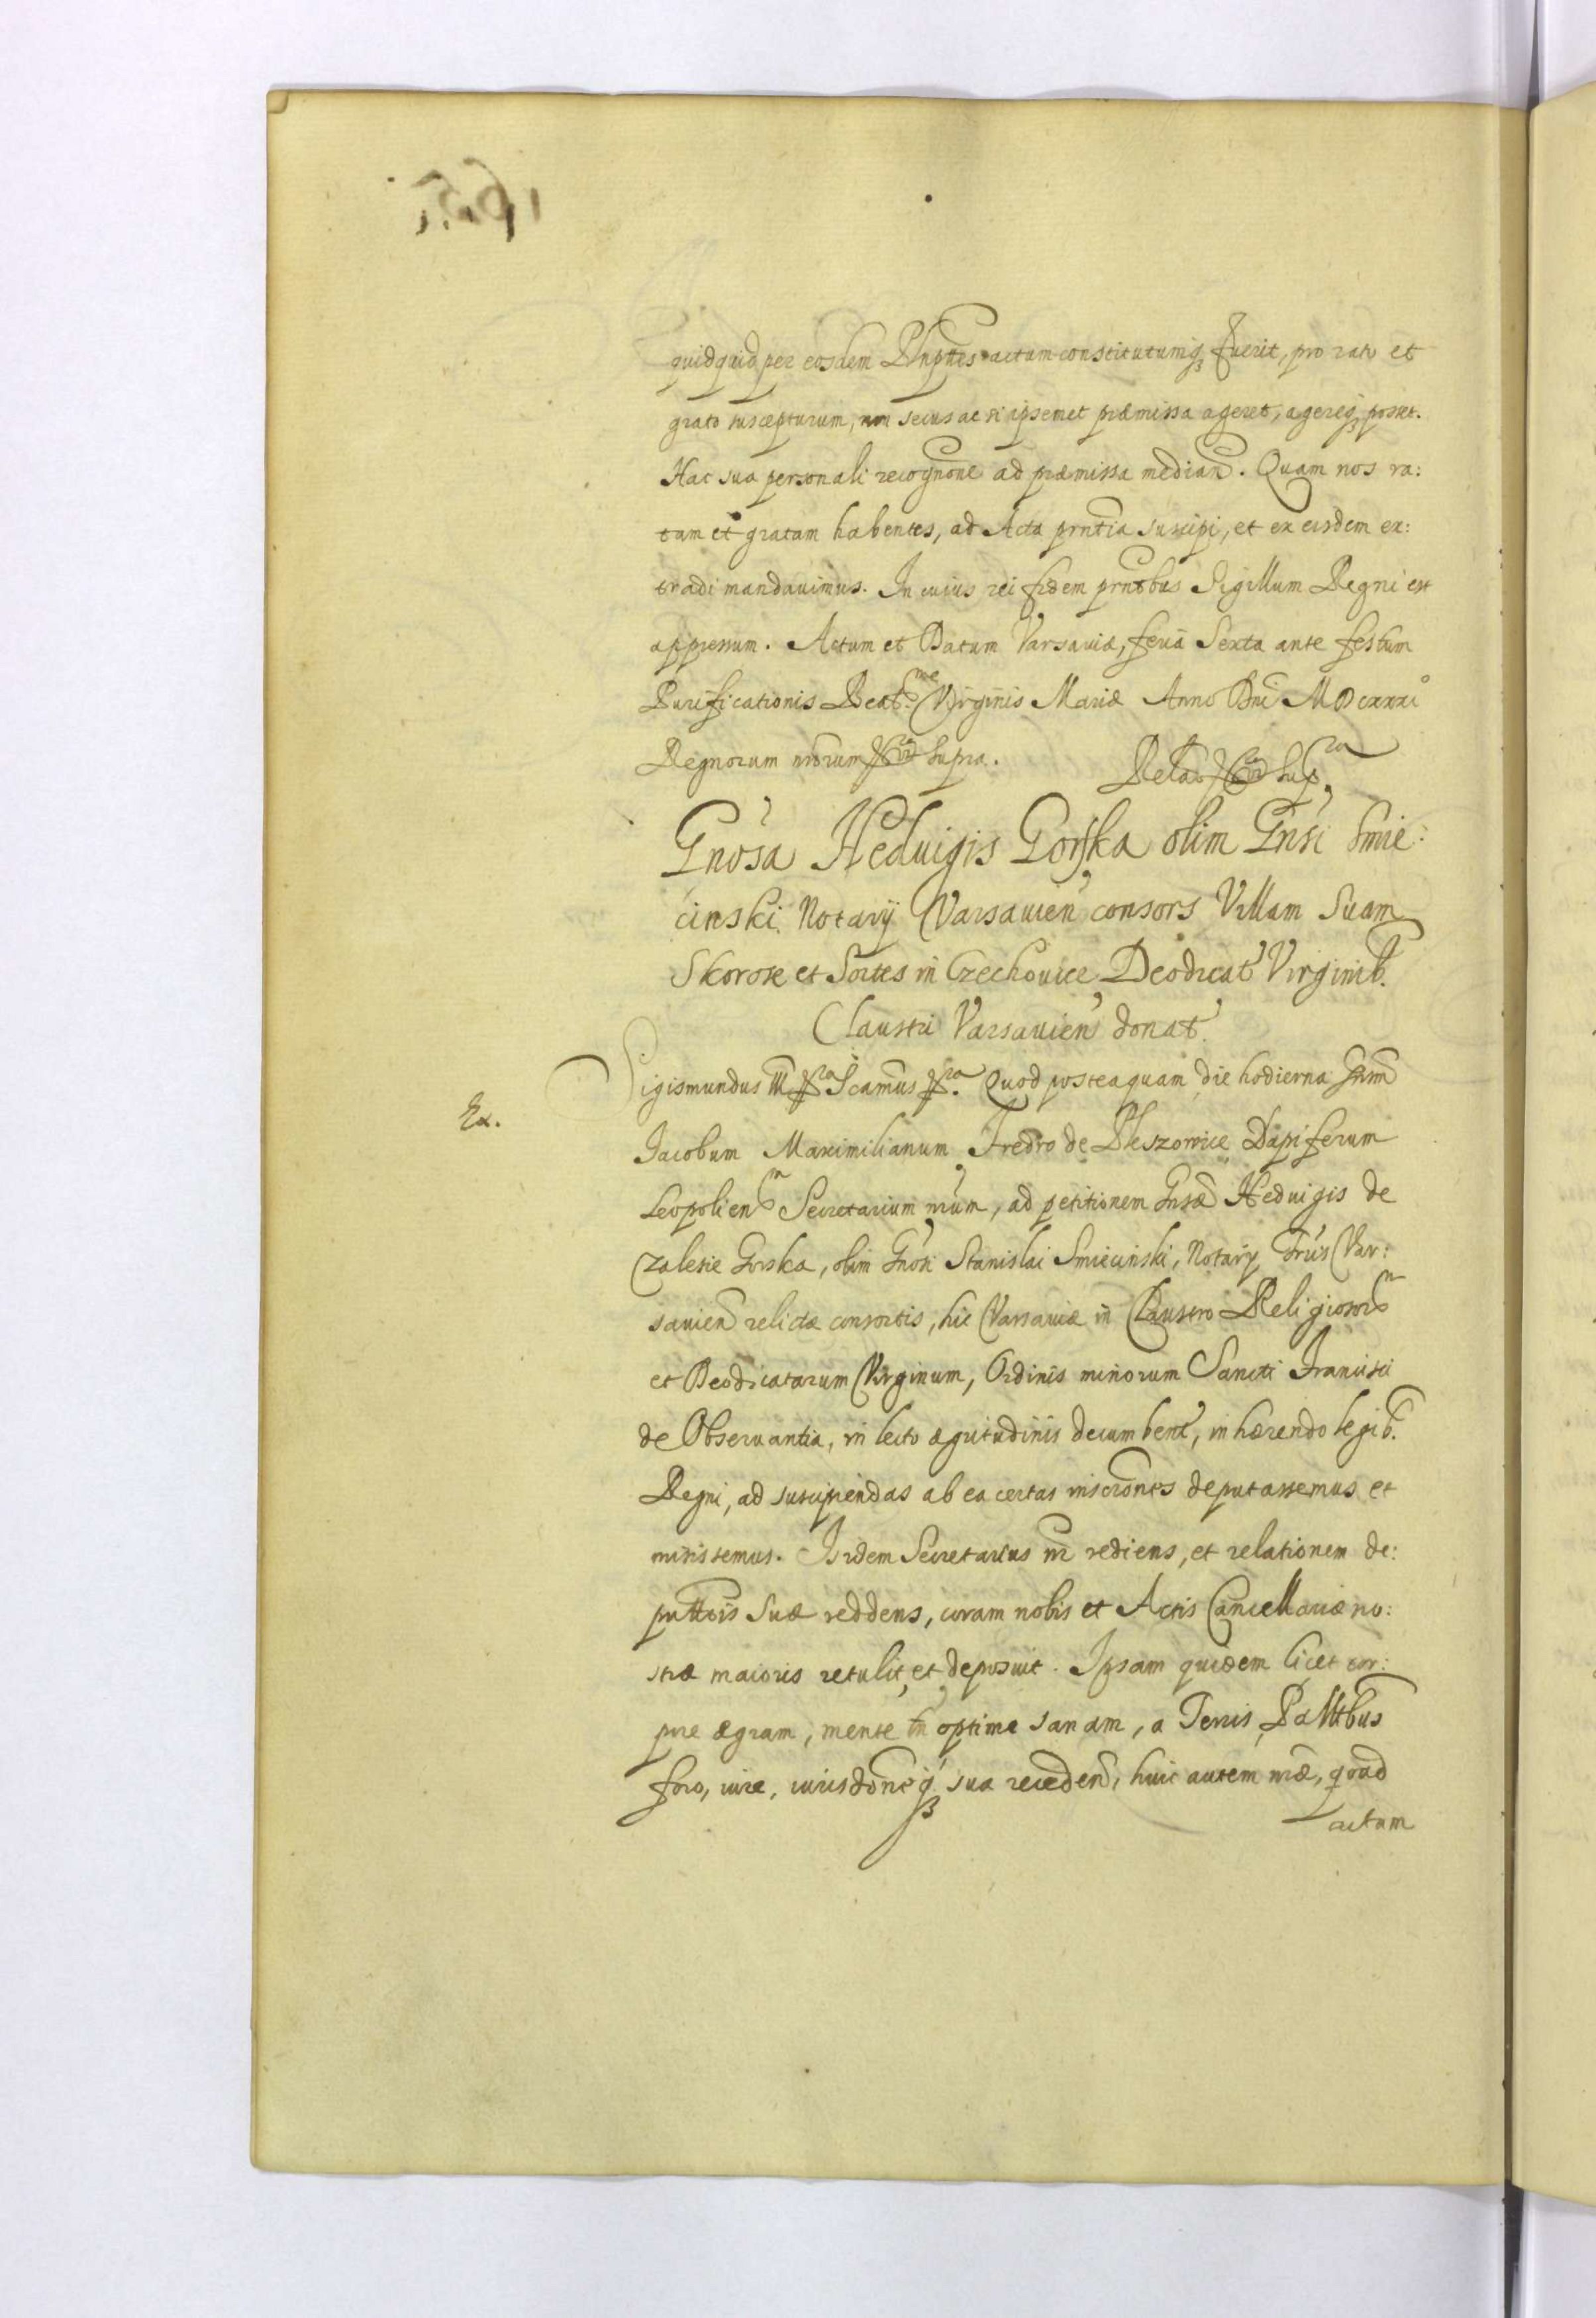 quidquid per eosdem Plnptes actum constitutumq₃ fuerit, pro rato et
grato suscepturum, non secus ac si ipsemet præmissa ageret, agereq₃ posset.
Hac sua personali recognone ad præmissa median. Quam nos ra:
tam et gratam habentes, ad Acta prntia suscipi, et ex eisdem ex:
tradi mandavimus. In cuius rei fidem prntbus Sigillum Regni est
appressum. Actum et Datum Varsaviæ, feria Sexta ante festum
Purificationis Beatme Virginis Mariæ Anno Dni MDCxxxi°
Regnorum nrorum supra.
Relao sup.ra
Gnosa Heduigis Gorska olim Gnsi Smie:
cinski Notarij Varsavien consors Villam Suam
Skorose et Sortes in Czechovice Deodicat Virginib.
Claustri Varsavien donat.
Ex.
Sigismundus III Scamus Quod posteaquam die hodierna Gnsm
Iacobum Maximilianum Fredro de Pleszowice Dapiferum
Leopolien Secretarium nrum, ad petitionem Gnsæ Heduigis de
Zalesie Gorska, olim Gnosi Stanislai Smiecinski, Notarij Trris Var:
savien relictæ consortis, hic Varsaviæ in Claustro Religiosor
et Deodicatarum Virginum, Ordinis minorum Sancti Francisci
de Observantia, in lecto ægritudinis decumbent, inhærendo legib.
Regni, ad suscipiendas ab ea certas inscrones deputassemus et
misissemus. Isidem Secretarius nr rediens, et relationem de:
puttois suæ reddens, coram nobis et Actis Cancellariæ no:
stræ maioris retulit, et deposuit. Ipsam quidem licet cor:
pore ægram, mente tn optime sanam, a Terris, Palltbus
foro, iure, iurisdoneq₃ sua receden, huic autem nræ, quoad
actum